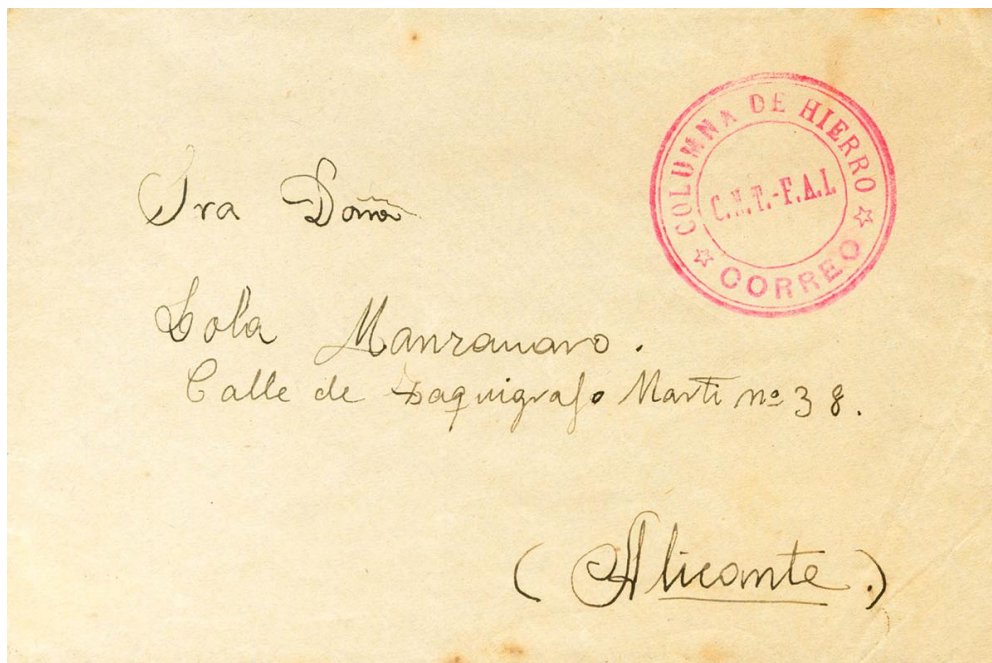 COLUMNA DE HIERRO
C.N.T.-F.A.I.
CORREO
Sra Doña
Lola Manzanaro.
Calle de Taquigrafo Marti nº 38.
(Alicante.)